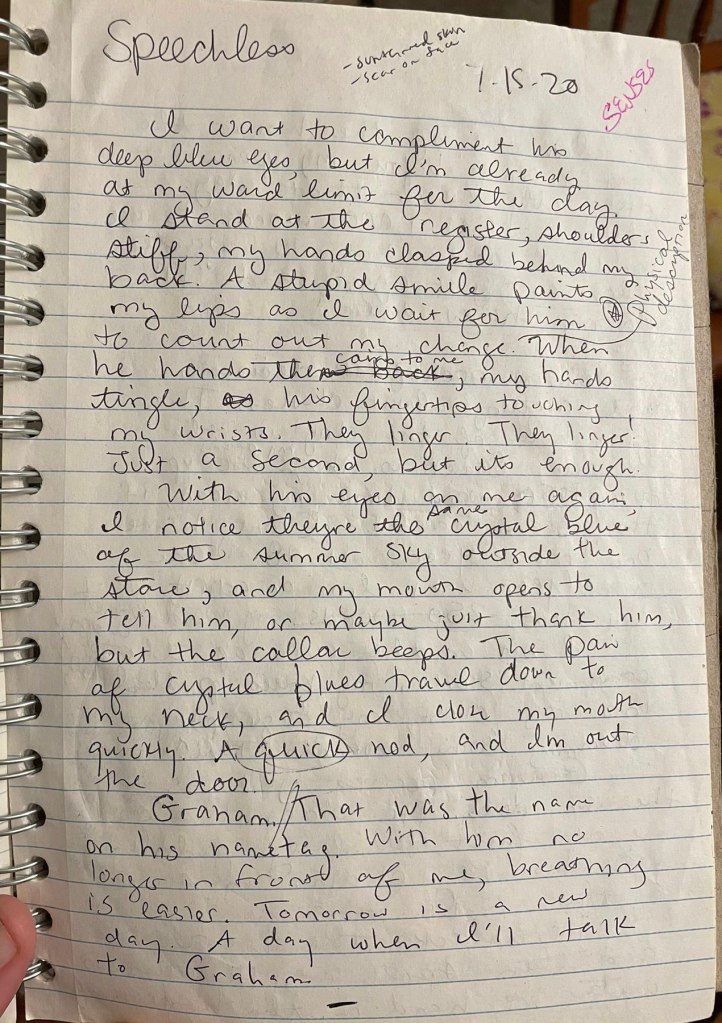 Speechless
- suntanned skin
- scar on face
7-15-20
SENSES
I want to compliment his
deep blue eyes, but I'm already
at my word limit for the day.
I stand at the register, shoulders
stiff, my hands clasped behind my
back. A stupid smile paints
my lips as I wait for him
Physical
description
to count out my change. When
he hands the coins to me, my hands
tingle, his fingertips touching
my wrists. They linger. They linger!
Just a second, but its enough.
With his eyes on me again,
I notice theyre the same crystal blue
of the summer sky outside the
store, and my mouth opens to
tell him, or maybe just thank him,
but the collar beeps. The pair
of crystal blues travel down to
my neck, and I close my mouth
quickly. A quick nod, and I'm out
the door.
Graham. That was the name
on his nametag. With him no
longer in front of me, breathing
is easier. Tomorrow is a new
day. A day when I'll talk
to Graham.